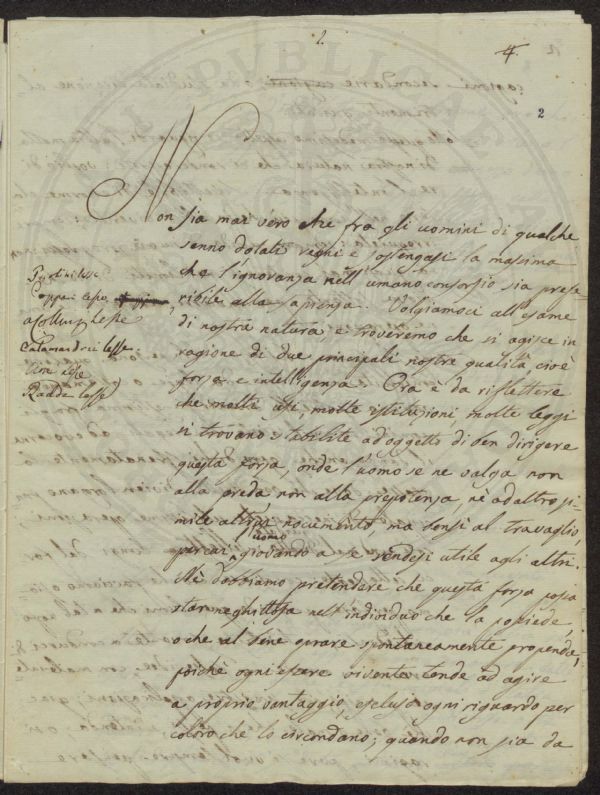 2.
2
Non sia mai vero che fra gli uomini di qualche
senno dotati regni e sostengasi la massima
che l'ignoranza nell'umano consorzio sia prefe-
ribile alla sapienza. Volgiamoci all'esame
di nostra natura e troveremo che si agisce in
ragione di due principali nostre qualità, cioè
forza e intelligenza. Ora è da riflettere
che molti usi, molte istituzioni, molte leggi
si trovano stabilite ad oggetto di ben dirigere
questa forza, onde l'uomo se ne valga non
alla preda, non alla prepotenza, nè ad altro si-
mile altrui nocumento, ma bensì al travaglio,
per cui uomo giovando a se rendesi utile agli altri.
Nè dobbiamo pretendere che questa forza possa
star neghittosa nell'individuo che la possiede,
o che al bene oprare spontaneamente propenda,
poichè ogni essere vivente tende ad agire
a proprio vantaggio, escluso ogni riguardo per
coloro che lo circondano; quando non sia da
lesse
lesse
a Colluz lesse
Calamandrei lesse.
lesse
Radde lesse